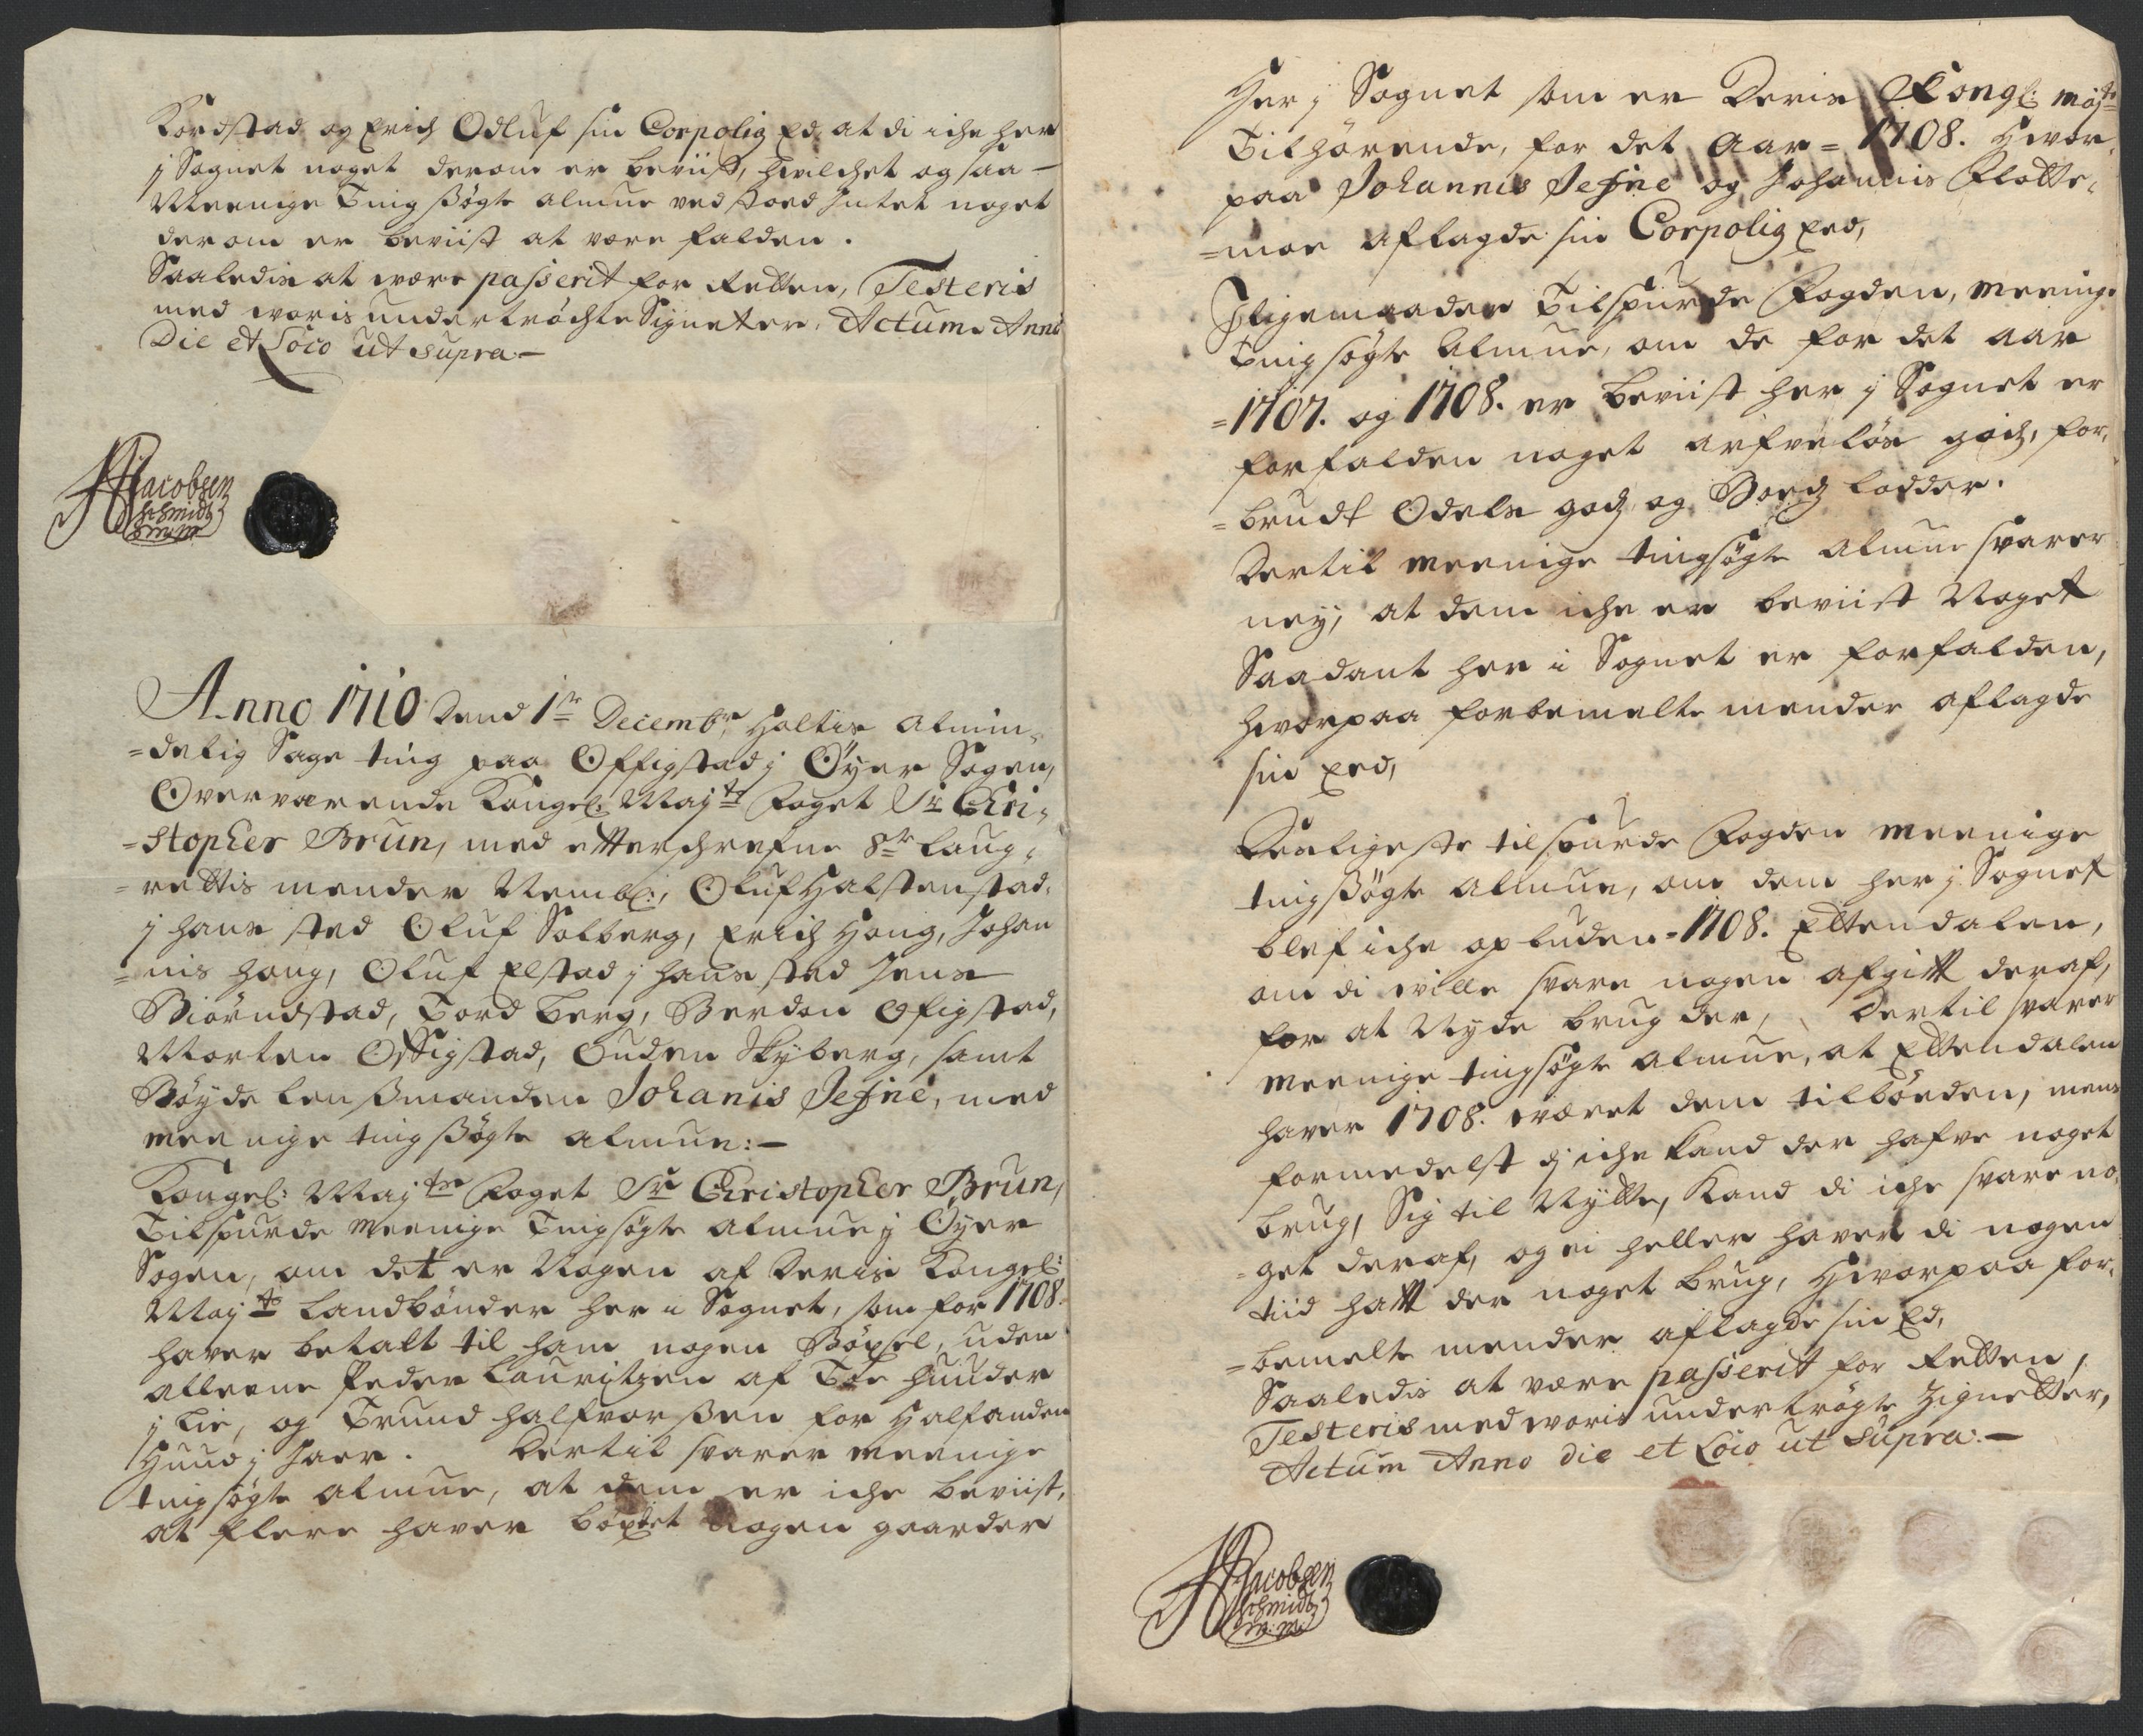 Kordstad og Erich Odluf sin Corpolig Ed at di iche her
j Sognet noget derom er beviist, hvilchet og saa
Meenige Tingsøgte almue ved stoed intet noget
derom er beviist at være falden.
Saaledis at være passerit for Retten, Testeris
med voris undertrøchte Signeter, Actum Anno
Die et Loco ut supra.-
HJacobsen
Schmidt
mm
Anno 1710 Dend 1te Decembr. Holtis almin-
=delig Sage ting paa Offigstad j Øyer Sogen,
Overværende Kongel: Mayts Foget Sr Chri-
=stopher Brun, med etterschrefne 8te Laug-
=rettis mender Nembl:, Oluf Halstenstad,
j hans sted Oluf Solberg, Erich Houg, Johan
=nis houg, Oluf Elstad j hans sted Jens
Biørndstad, Tord Berg, Berdon Ofigstad,
Morten Offigstad, Ouden Skyberg, samt
Bøyde lensßmanden Johanis Jefne, med
meenige tingsßøgte almue:-
Kongel: Mayts Foget Sr Christopher Brun,
Tilspurde meenige Tingsøgte almue j Øyer
Sogen, om det er Nogen af Deris Kongel:
Mayts Landbønder her i Sognet, som for 1708.
haver betalt til ham nogen Bøxel, uden
alleene Peder Lauritzen af Toe huuder
j Lie, og Trund halfvorßen for Halfanden
Huud j Jaer. Dertil svarer meenige
tingsøgte almue, at dem er iche beviist,
at flere haver bøxlet Nogen gaarder
Her j Sognet som er Deris Kongl: Mayts
Tilhørende, for det Aar = 1708. Hvor-
paa Johannis Jefne og Johannis Flotte-
=moe aflagde sin Corpolig Eed,
Iligemaader Tilspurde Fogden, meenige
tingsøgte almue, om de for det aar
=1707. og 1708. er beviist her j Sognet er
forfalden noget arfveløs godz, for-
=brudt Odels godz og Boedz lodder.
Dertil meenige tingsøgte almue svarer
ney, at dem iche er beviist Noget
Saadant her i Sognet er forfalden,
hvorpaa forbemelte mender aflagde
sin Eed,
Desligeste tilspurde Fogden meenige
tingsßøgte almue, om dem her j Sognet
blef iche opbuden = 1708. Ettendalen,
om di ville svare nogen afgift deraf,
for at Nyde brug der, Dertil svarer
meenige tingsøgte almue, at Ettendalen
haver 1708. været dem tilbøeden, mens
formedelst dj iche kand der hafve noget
brug, Sig til Nytte, Kand di iche svare no-
=get deraf, og ei heller haver di nogen
tiid hatt der noget brug, Hvorpaa for-
=bemelte mender aflagde sin Ed,
Saaledis at være passerit for Retten,
Testeris med voris undertrøgte Zignetter,
Actum Anno die et Loco ut supra.-
HJacobsen
Schmidt
m.m.